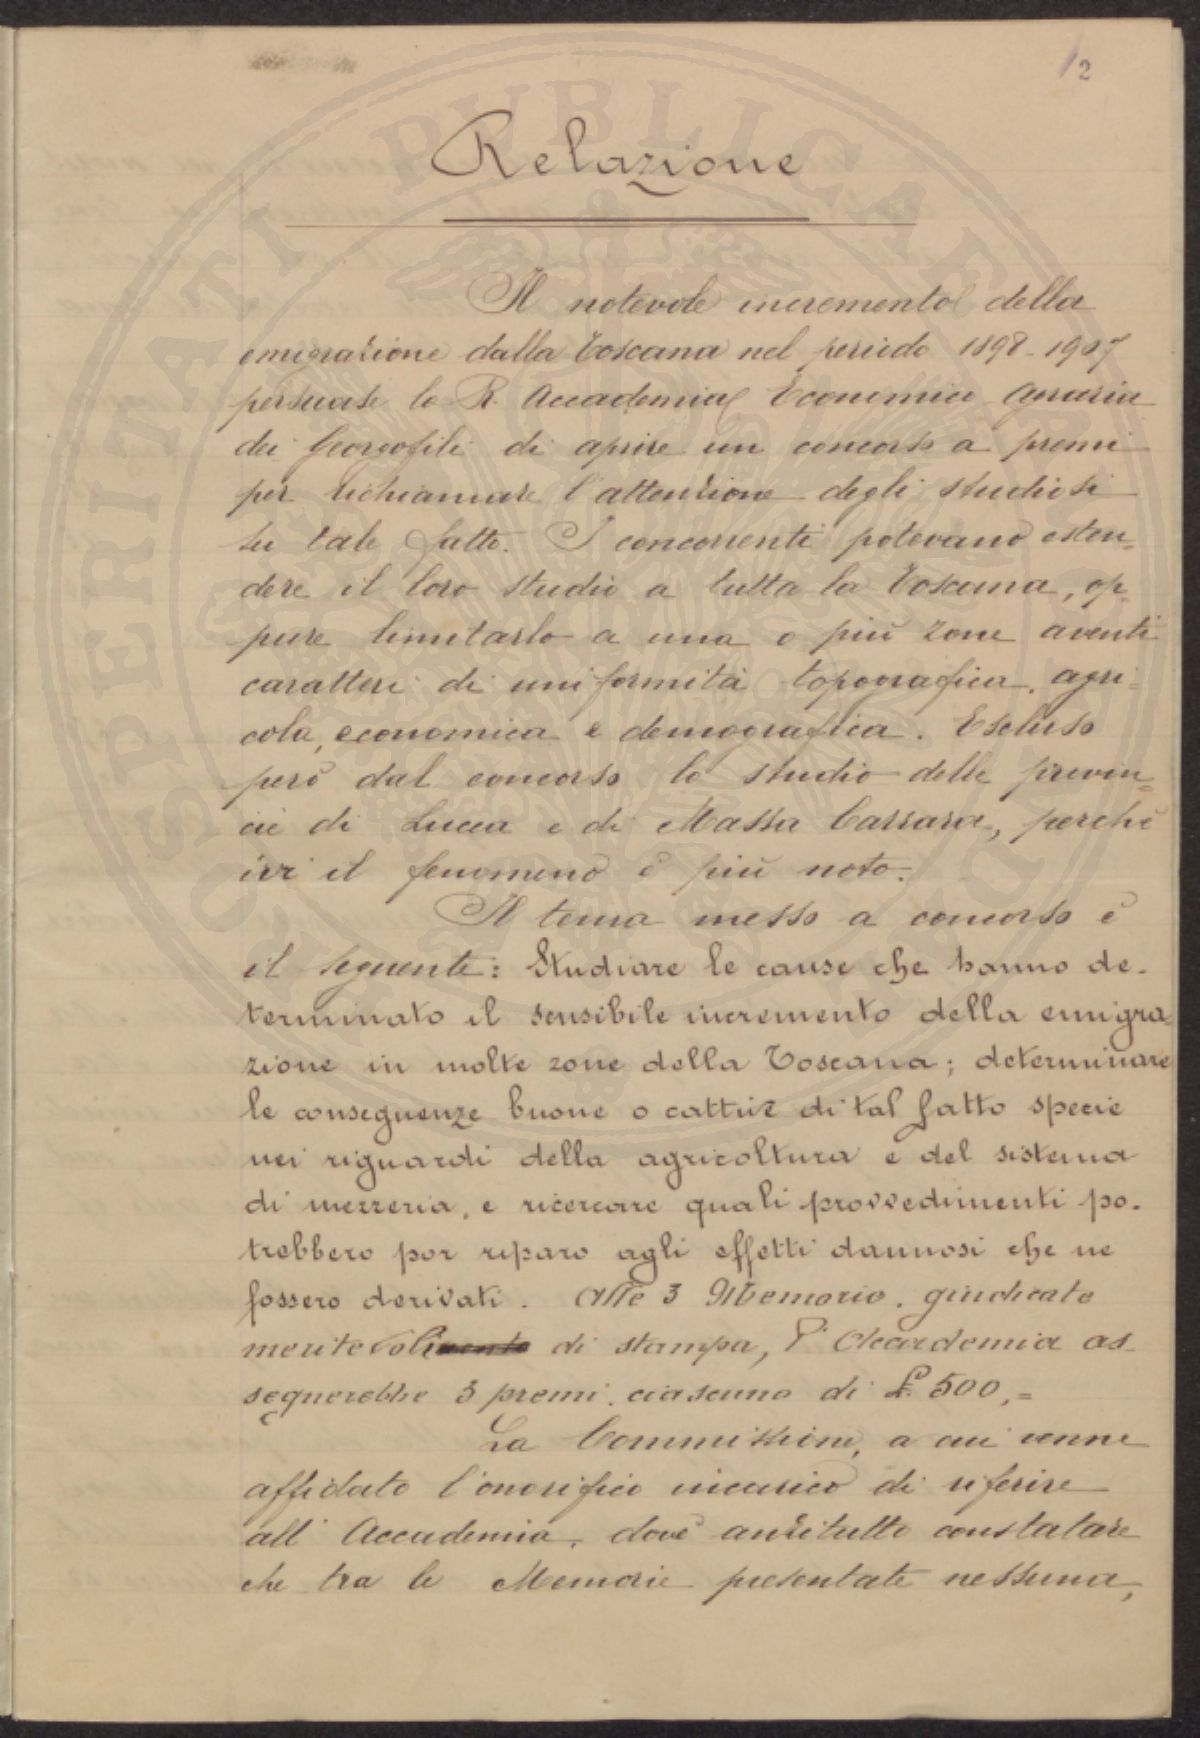 2
Relazione
Il notevole incremento della
emigrazione dalla Toscana nel periodo 1898-1907
persuase la R. Accademia Economico Agraria
dei Georgofili di aprire un concorso a premi
per richiamare l'attenzione degli studiosi
su tale fatto. I concorrenti potevano esten=
dere il loro studio a tutta la Toscana, op-
pure limitarlo a una o più zone aventi
caratteri di uniformità topografica, agri-
cola, economica e demografica. Escluso
però dal concorso lo studio delle provin=
cie di Lucca e di Massa Carrara, perchè
ivi il fenomeno è più noto.
Il tema messo a concorso è
il seguente: Studiare le cause che hanno de-
terminato il sensibile incremento della emigra=
zione in molte zone della Toscana; determinare
le conseguenze buone o cattive di tal fatto specie
nei riguardi della agricoltura e del sistema
di mezzeria, e ricercare quali provvedimenti po-
trebbero por riparo agli effetti dannosi che ne
fossero derivati. Alle 3 Memorie giudicate
meritevoli di stampa, l'Accademia as-
segnerebbe 3 premi ciascuno di £. 500,=
La Commissione, a cui venne
affidato l'onorifico incarico di riferire
all'Accademia, dovè anzitutto constatare
che tra le Memorie presentate nessuna,
SPERITATI PUBLICAE